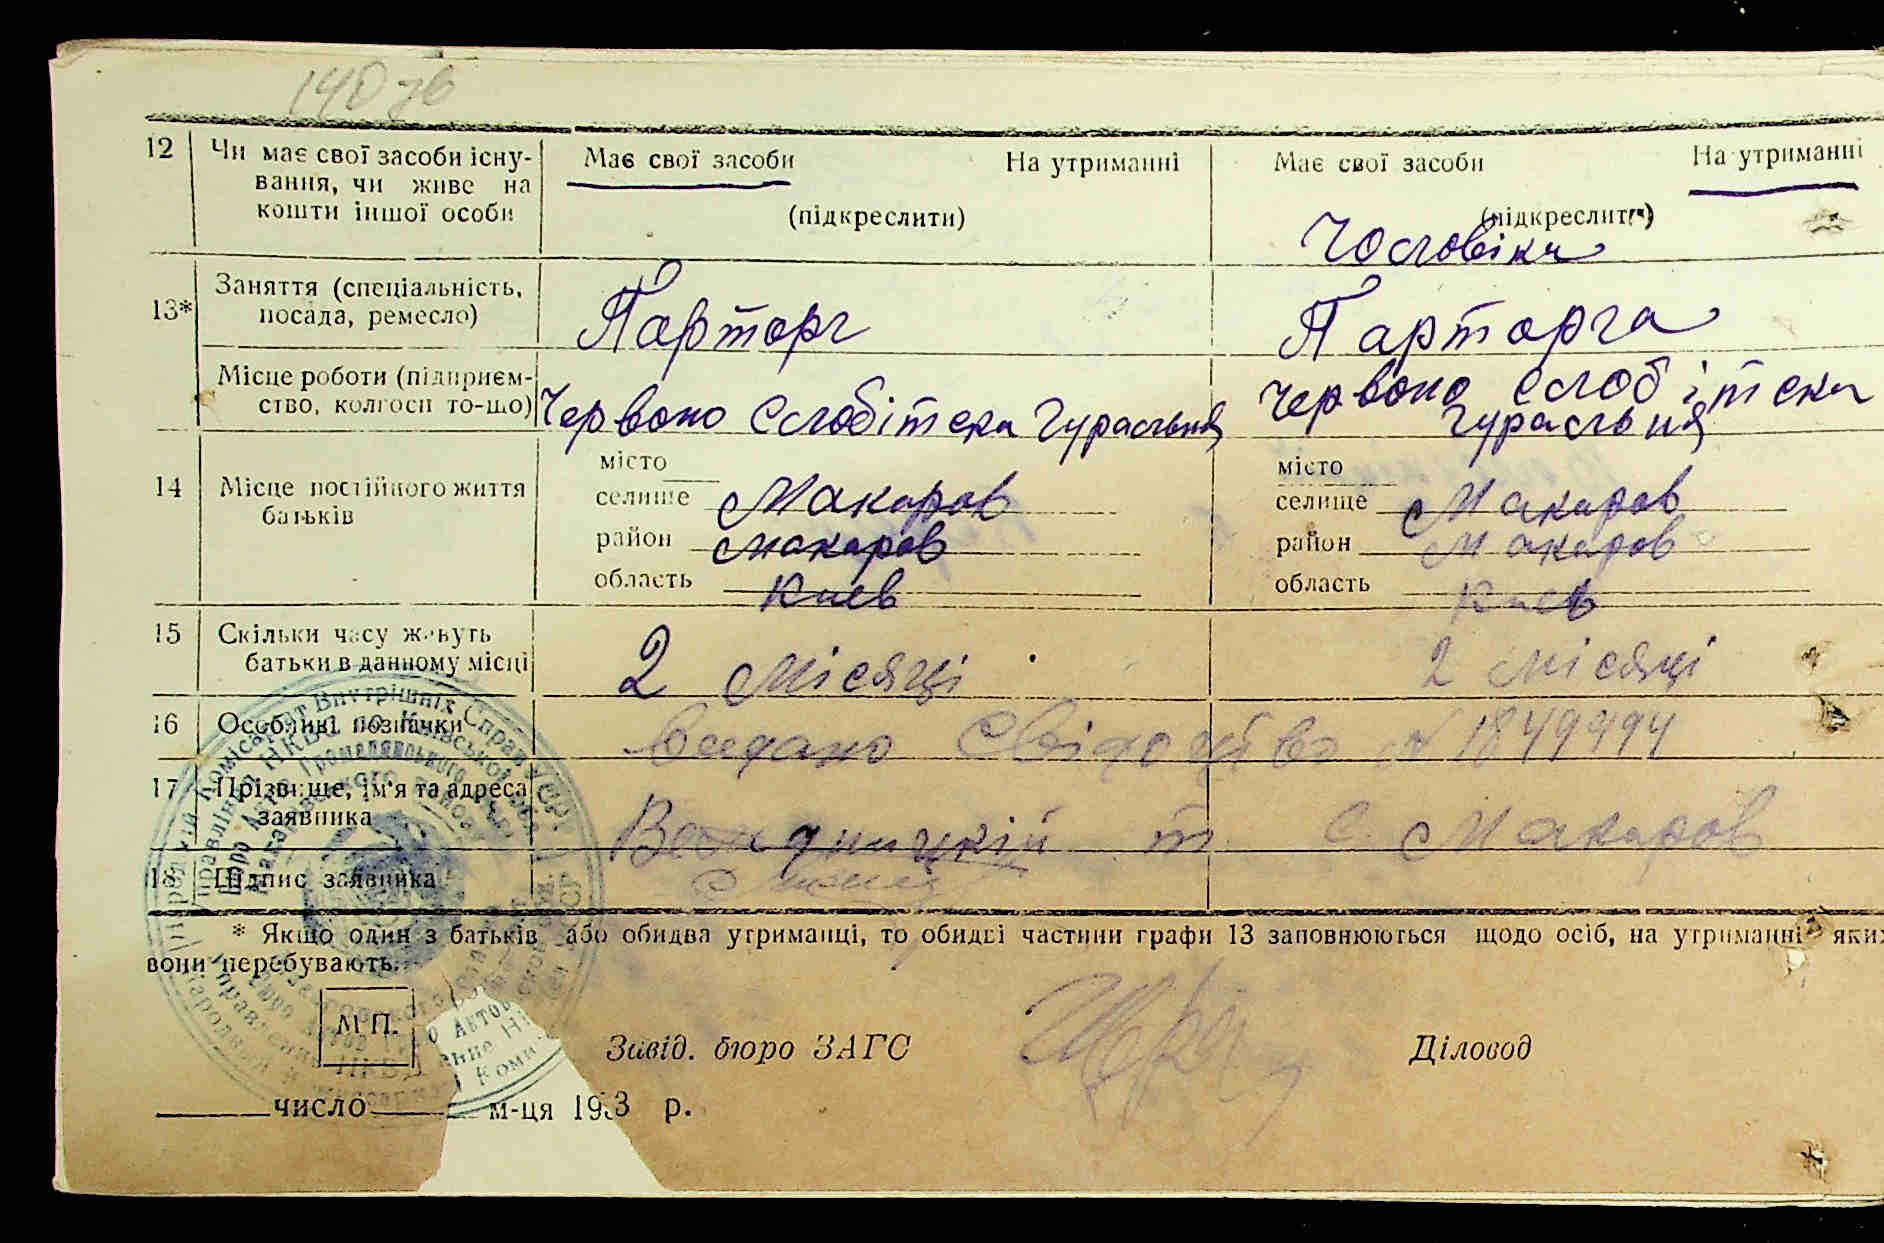 140 зв
12 Чи має свої засоби існу- Має свої засоби На утриманні Має свої засоби На утриманні
вання, чи живе на
кошти іншої особи (підкреслити) (підкреслити)
Чоловіка
13* Заняття (спеціальність, Парторг Парторга
посада, ремесло)
Місце роботи (підприєм- Червоно Слобітска Гуральня Червоно Слобітска
ство, колгосп то-що) Гуральня
14 Місце постійного життя місто місто
батьків селище Макаров селище Макаров
район Макаров район Макаров
область Киев область Киев
15 Скільки часу живуть 2 місяці 2 місяці
батьки в данному місці
16 Особливі позначки видано свідоцтво № 1849494
17 Прізвище, ім'я та адреса
заявника с. Макаров
18 Підпис заявника
* Якщо один з батьків або обидва утриманці, то обидві частини графи 13 заповнюються щодо осіб, на утриманні яких
вони перебувають.
М.П.
Завід. бюро ЗАГС Діловод
число м-ця 193 р.